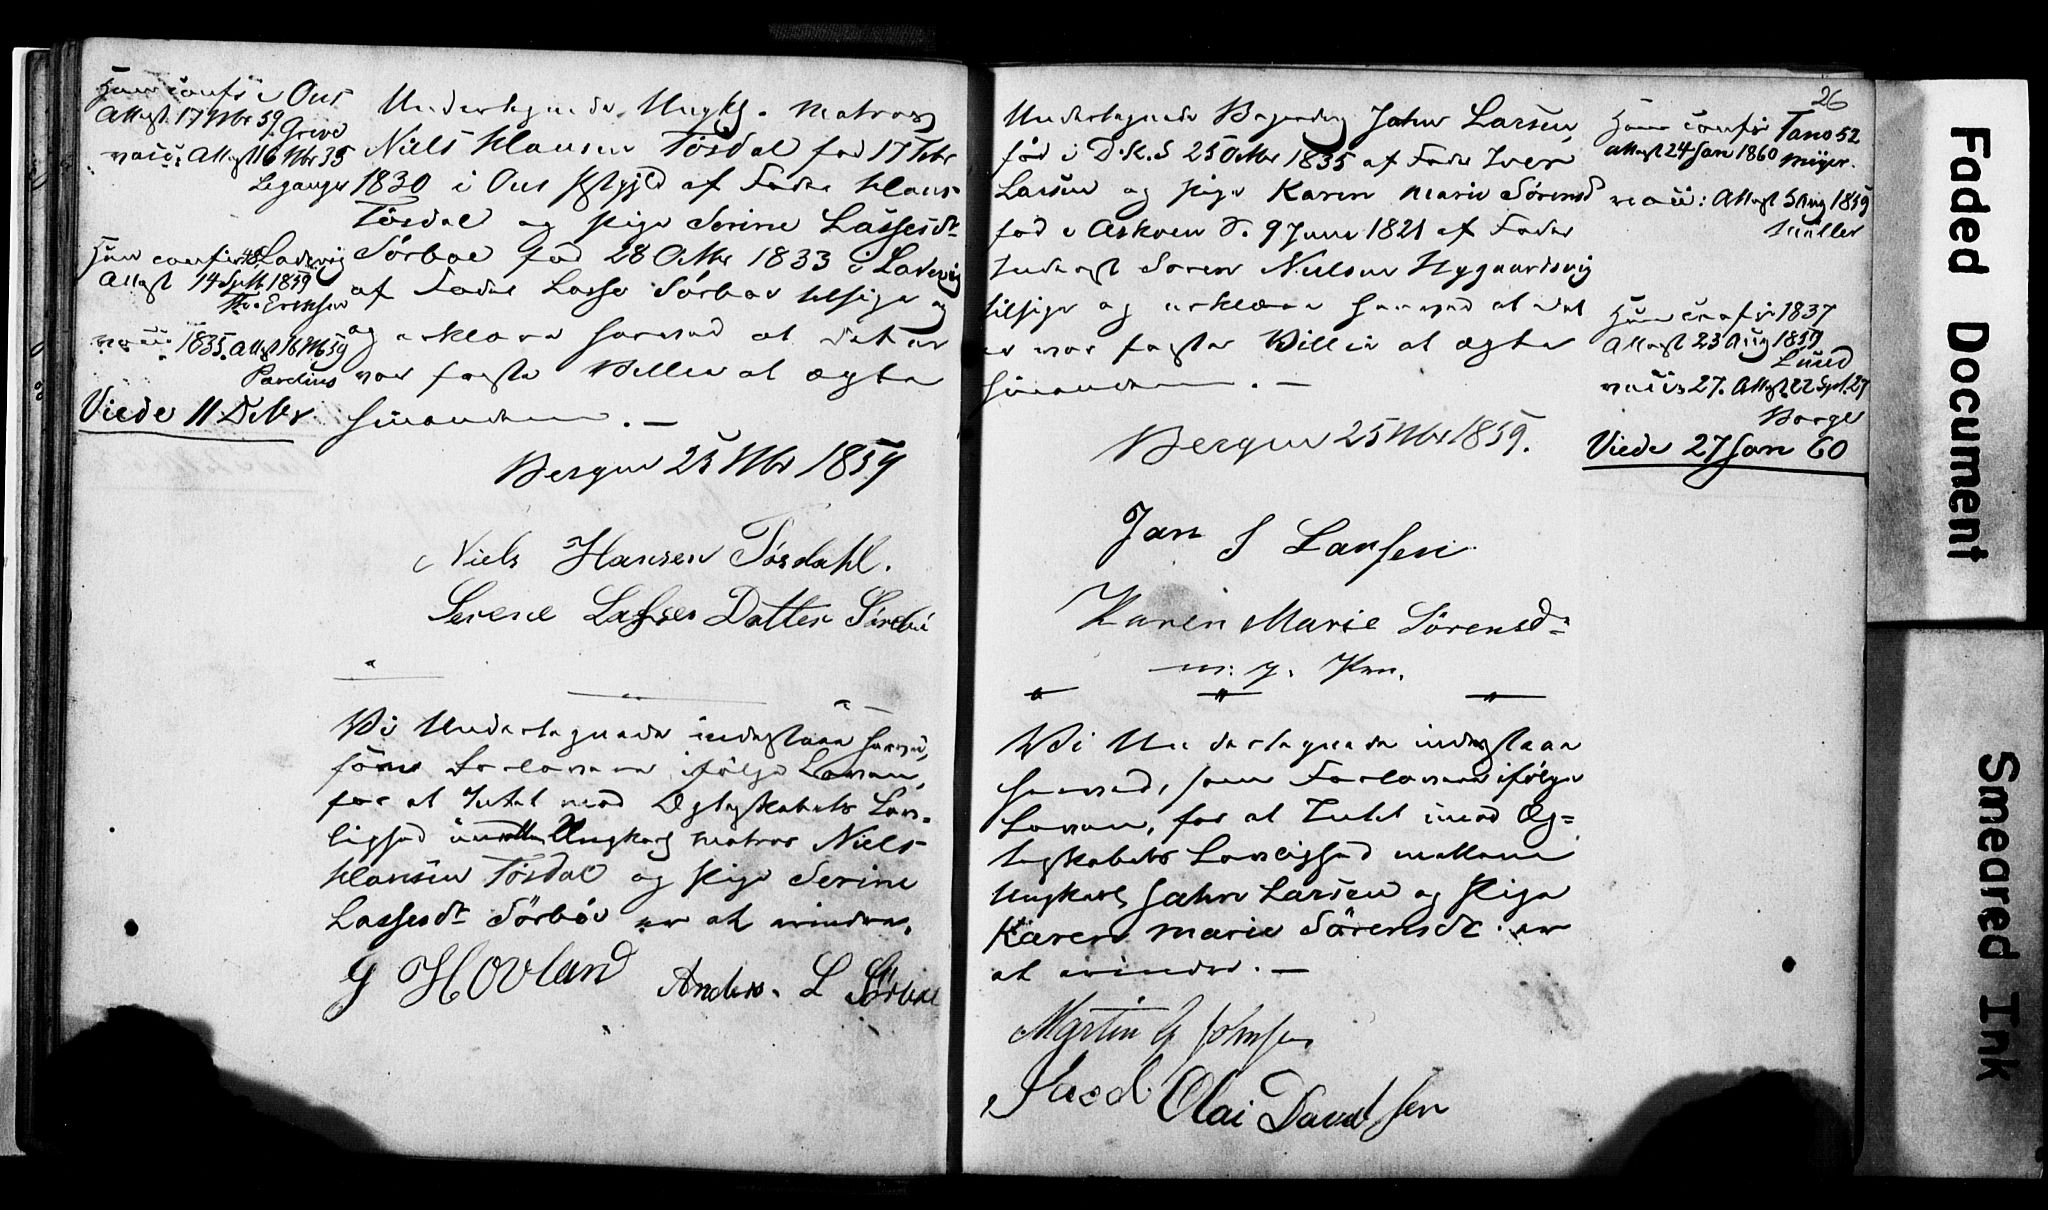 Han confir i Ous
Attest 17 Nbr 59. Greve
vacc: Attest 16 Nbr 35
Leganger
Hun confir 48 Ladevig
Attest 14 Septb. 1859
Th. Eriksen
vacc 1835. Attest 16 Nb 59
Pavelius
Viede 11 Debr
Undertegnede Ungk. Matros
Niels Hansen Tösdal fød 17 Febr
1830 i Ous Pstgjld af Fader Hans
Tösdal og Pige Serine Lassesdt
Sörböe fød 28 Octbr 1833 i Ladevig
af Fader Lasse Sörböe tilsige og
og erklære herved at det er
vor faste Villie at ægte
hinanden. —
Bergen 25 Nbr 1859
Niels Hansen Tösdahl.
Serene Lasses Datter Sörebö
Vi Undertegnede indestaae herved,
som Forlovere ifölge Loven,
for at Intet mod Ægteskabets Lov-
lighed Ungkarl Matros Niels
Hansen Tösdal og Pige Serine
Lassesdt Sörböe er at erindre.
G Hovland Anders. L Sörböe
26
Undertegnede Jahn Larsen,
fød i D.K.S 25 Octbr 1835 af Fader Iver
Larsen og Pige Karen Marie Sørensd
fød i Askøen d. 9 Juni 1821 af Fader
Inderst Søren Nielsen Hygaardsvig
tilsige og erklære herved at det
er vor faste Villie at ægte
hinanden. —
Bergen 25 Nbr 1859.
Jan S Larsen
Karen Marie Sörensdr
m. p. Pen.
Vi Undertegnede indestaae
herved, som Forlovere ifölge
Loven, for at Intet imod Æg=
teskabets Lovlighed mellem
Ungkarl Jahn Larsen og Pige
Karen Marie Sörensdt. er
at erindre. —
Martin G Johnsen
Olai Davidsen
Han confir Tano 52
attest 24 Jan 1860 Meyer.
vacc: Attest 5 Aug 1859
Müller
Hun confir 1837
Attest 23 Aug 1859
Lund
vaccis 27. Attest 22 Spt. 27
Borge
Viede 27 Jan 60
Faded Document
Smeared Ink